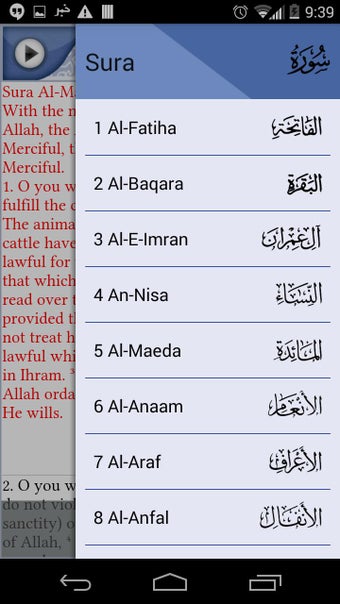 خبر
9:39
Sura سُورَة
Sura Al-M
With the n
Allah, the
Merciful, t
Merciful.
1. O you w
fulfill the
The anima
cattle have
lawful for
that which
read over t
provided th
not treat h
lawful whi
in Ihram. 3
Allah orda
He wills.
2. O you w
do not viol
sanctity) o
of Allah, 4
1 Al-Fatiha الفَاتِحَة
2 Al-Baqara البَقَرَة
3 Al-E-Imran آل عِمْرَان
4 An-Nisa النِّسَاء
5 Al-Maeda المَائدَة
6 Al-Anaam الأَنْعَام
7 Al-Araf الأَعْرَاف
8 Al-Anfal الأَنْفَال